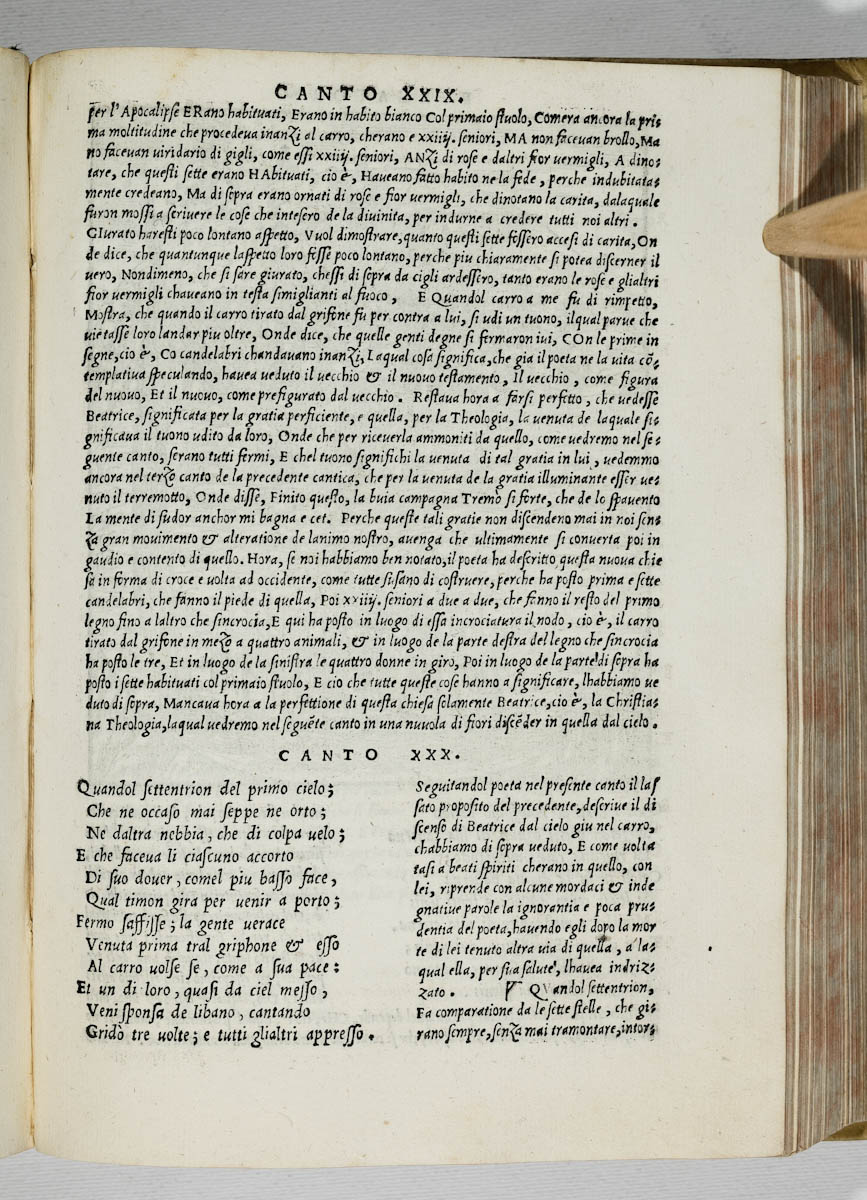 CANTO XXIX.
per l'Apocalipse ERano habituati, Erano in habito bianco Col primaio stuolo, Comera ancora la pri⸗
ma moltitudine che procedeva inanzi al carro, cherano e xxiiij. seniori, MA non facevan brollo, Ma
no facevan viridario di gigli, come essi xxiiij. seniori, ANZi di rose e daltri fior vermigli, A dino⸗
tare, che questi sette erano HAbituati, cio è, Haveano fatto habito ne la fede, perche indubitata⸗
mente credeano, Ma di sopra erano ornati di rose e fior vermigli, che dinotano la carita, dalaquale
furon mossi a scrivere le cose che intesero de la divinita, per indurne a credere tutti noi altri.
GIurato haresti poco lontano aspetto, Vuol dimostrare, quanto questi sette fossero accesi di carita, On
de dice, che quantunque laspetto loro fosse poco lontano, perche piu chiaramente si potea discerner il
vero, Nondimeno, che si sare giurato, chessi di sopra da cigli ardessero, tanto erano le rose e glialtri
fior vermigli chaveano in testa simiglianti al fuoco, E Quandol carro a me fu di rimpetto,
Mostra, che quando il carro tirato dal grifone fu per contra a lui, si udi un tuono, ilqual parue che
vietasse loro landar piu oltre, Onde dice, che quelle genti degne si fermaron ivi, COn le prime in
segne, cio è, Co candelabri chandavano inanzi, Laqual cosa significa, che gia il poeta ne la vita cõ⸗
templativa speculando, havea veduto il vecchio & il nuovo testamento, Il vecchio, come figura
del nuovo, Et il nuovo, come prefigurato dal vecchio. Restava hora a farsi perfetto, che vedesse
Beatrice, significata per la gratia perficiente, e quella, per la Theologia, la venuta de laquale si⸗
gnificava il tuono udito da loro, Onde che per riceverla ammoniti da quello, come vedremo nel se⸗
guente canto, serano tutti fermi, E chel tuono significhi la venuta di tal gratia in lui, vedemmo
ancora nel terzo canto de la precedente cantica, che per la venuta de la gratia illuminante esser ve⸗
nuto il terremotto, Onde disse, Finito questo, la buia campagna Tremò si forte, che de lo spavento
La mente di sudor anchor mi bagna e cet. Perche queste tali gratie non discendeno mai in noi sen⸗
za gran movimento & alteratione de lanimo nostro, avenga che ultimamente si converta poi in
gaudio e contento di quello. Hora, se noi habbiamo ben notato, il poeta ha descritto questa nuova chie
sa in forma di croce e volta ad occidente, come tutte si sano di costruere, perche ha posto prima e sette
candelabri, che fanno il piede di quella, Poi xxiiij. seniori a due a due, che fanno il resto del primo
legno fino a laltro che sincrocia, E qui ha posto in luogo di essa incrociatura il nodo, cio è, il carro
tirato dal grifone in mezo a quattro animali, & in luogo de la parte destra del legno che sincrocia
ha posto le tre, Et in luogo de la sinistra le quattro donne in giro, Poi in luogo de la parte di sopra ha
posto i sette habituati col primaio stuolo, E cio che tutte queste cose hanno a significare, lhabbiamo ve
duto di sopra, Mancava hora a la perfettione di questa chiesa solamente Beatrice, cio è, la Christia⸗
na Theologia, laqual vedremo nel seguẽte canto in una nuvola di fiori discẽder in quella dal cielo.
CANTO XXX.
Quandol settentrion del primo cielo;
Che ne occaso mai seppe ne orto;
Ne daltra nebbia, che di colpa velo;
E che faceva li ciascuno accorto
Di suo dover, comel piu basso face,
Qual timon gira per venir a porto;
Fermo saffisse; la gente verace
Venuta prima tral griphone & esso
Al carro volse se, come a sua pace:
Et un di loro, quasi da ciel messo,
Veni sponsa de libano, cantando
Gridò tre volte; e tutti glialtri appresso.
Seguitandol poeta nel presente canto il las
sato proposito del precedente, descrive il di
scenso di Beatrice dal cielo giu nel carro,
chabbiamo di sopra veduto, E come volta
tasi a beati spiriti cherano in quello, con
lei, riprende con alcune mordaci & inde
gnative parole la ignorantia e poca pru⸗
dentia del poeta, havendo egli dopo la mor
te di lei tenuto altra via di quella, a la⸗
qual ella, per sua salute, lhavea indriz⸗
zato. QVandol settentrion,
Fa comparatione da le sette stelle, che gi⸗
rano sempre, senza mai tramontare, intor⸗